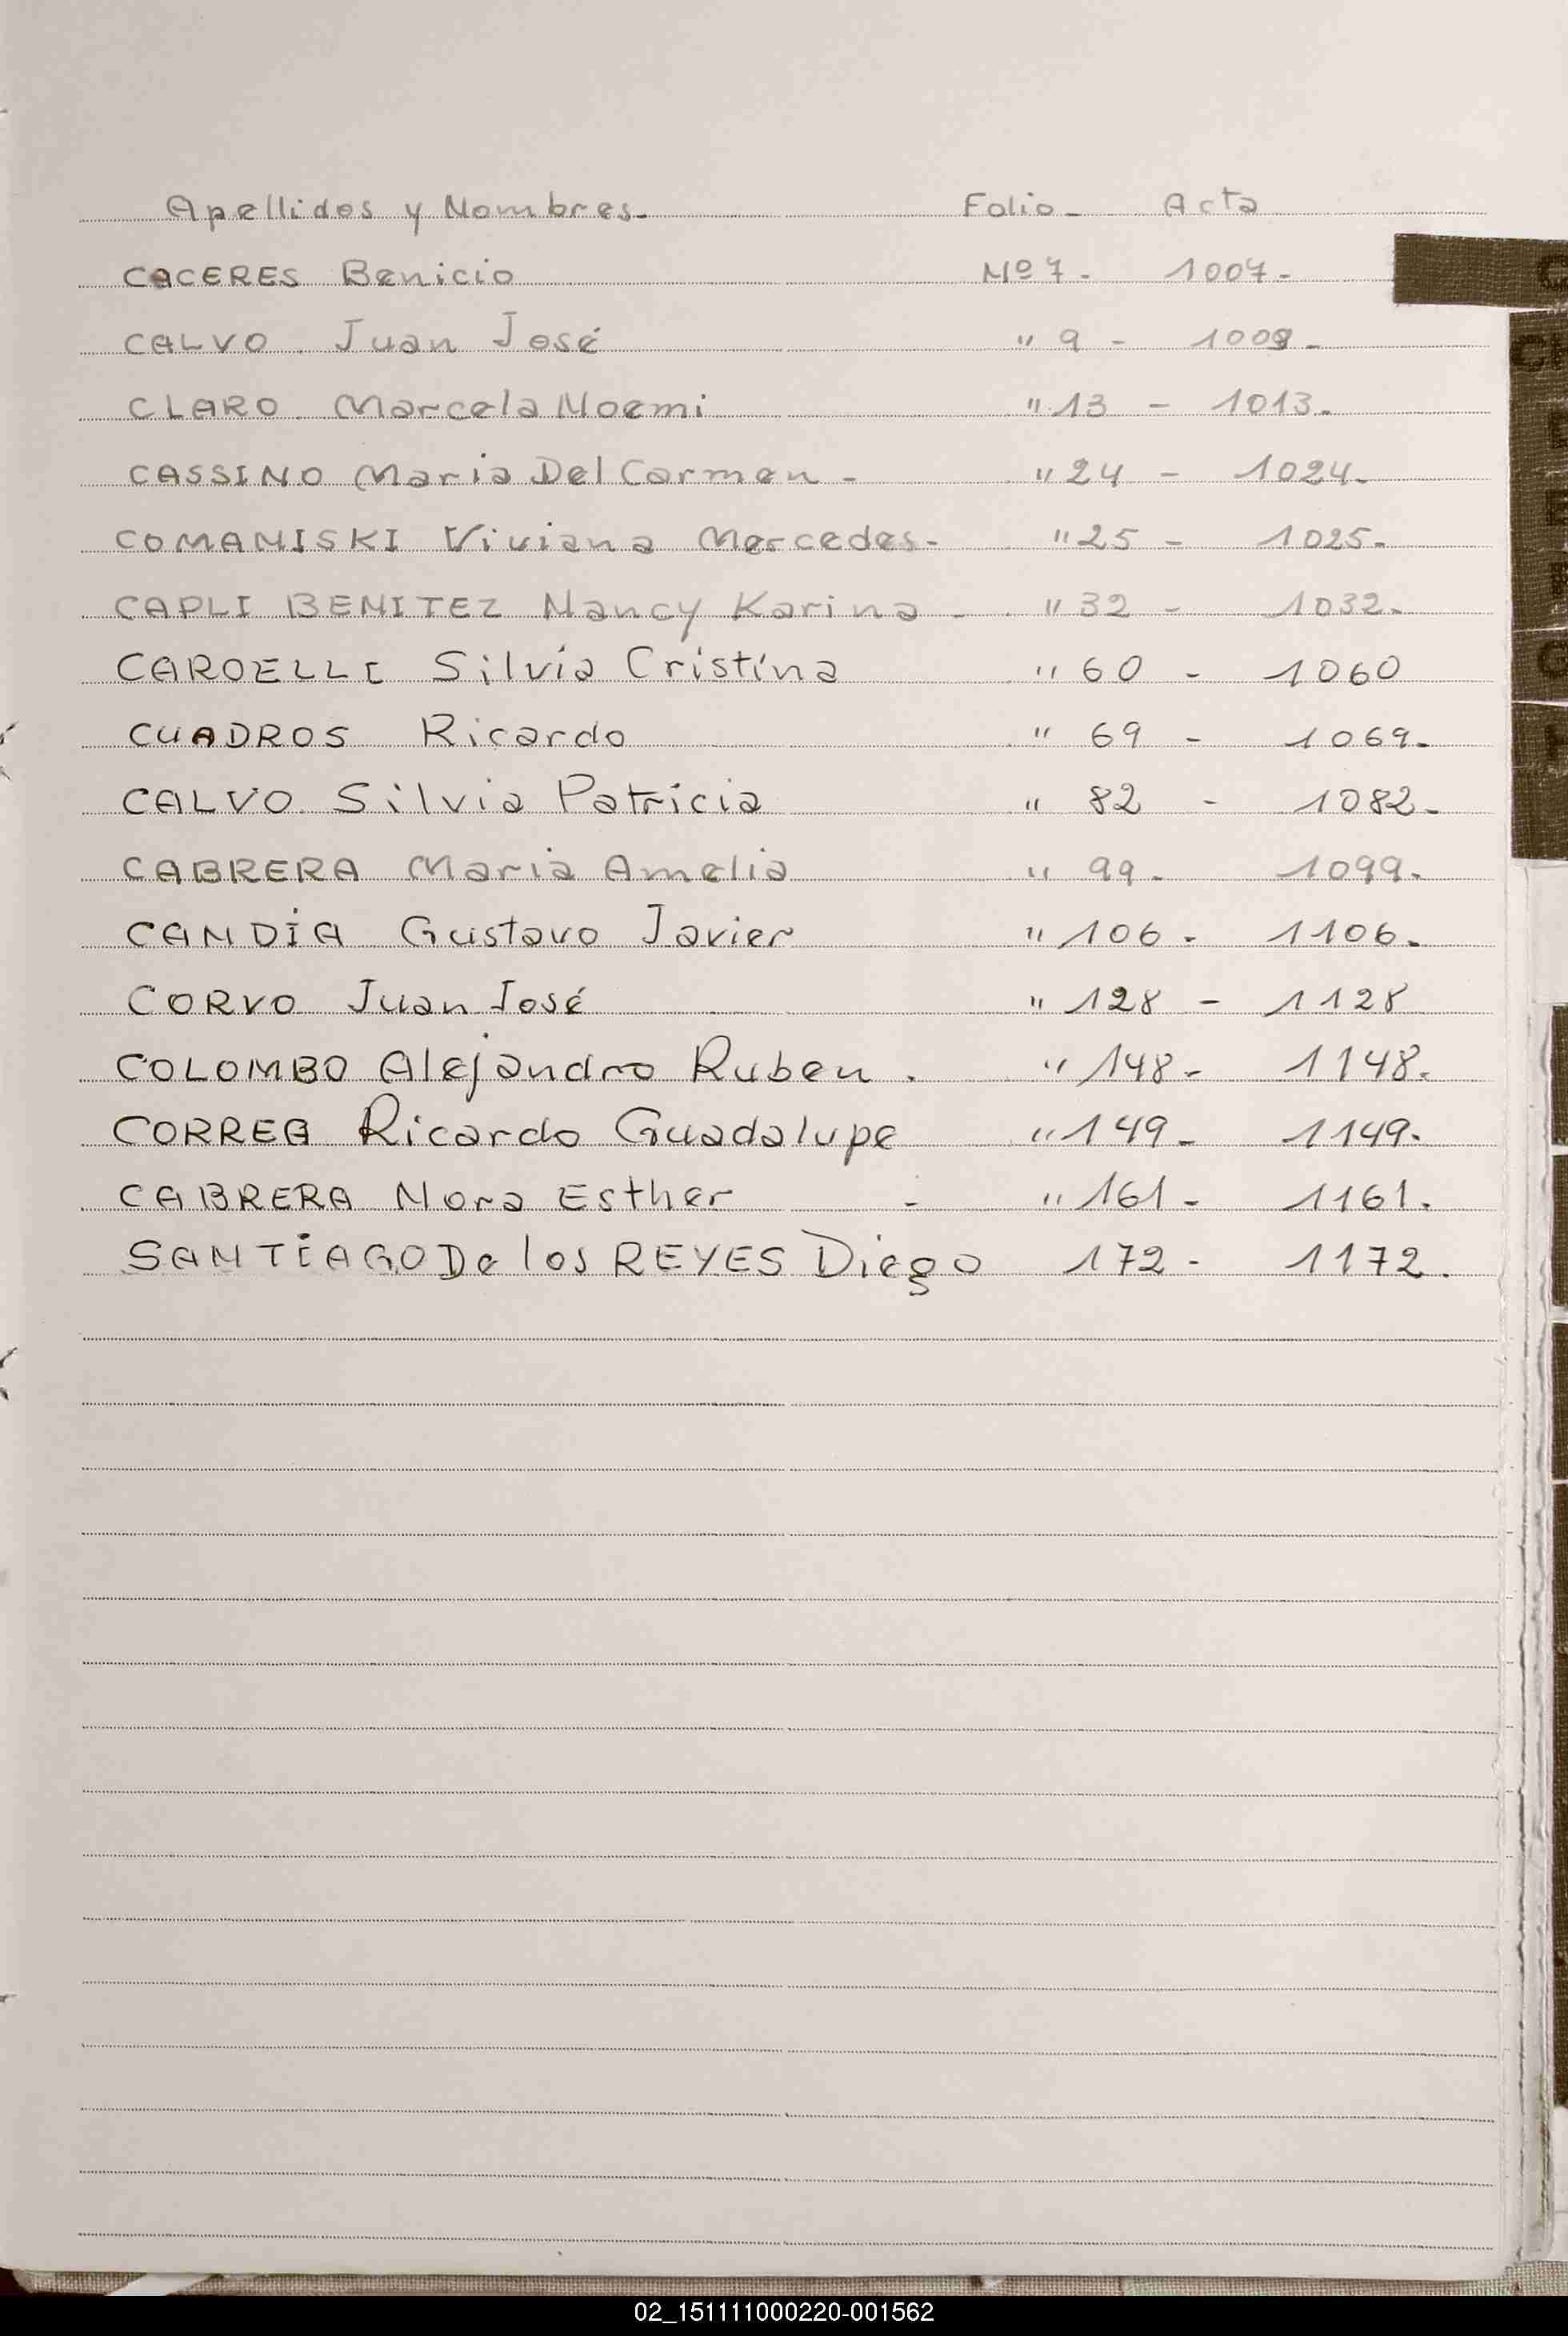 Apellidos y Nombres. Folio - Acta
CACERES Benicio Nº 7 - 1007 -
CALVO Juan José " 9 - 1009 -
CLARO Marcela Noemi " 13 - 1013.
CASSINO Maria Del Carmen - " 24 - 1024.
COMANISKI Viviana Mercedes - " 25 - 1025.
CAPLI BENITEZ Nancy Karina - " 32 - 1032.
CAROELLI Silvia Cristina " 60 - 1060
CUADROS Ricardo " 69 - 1069.
CALVO Silvia Patricia " 82 - 1082.
CABRERA Maria Amelia " 99 - 1099.
CANDIA Gustavo Javier " 106 - 1106.
CORVO Juan José " 128 - 1128
COLOMBO Alejandro Ruben . " 148 - 1148.
CORREA Ricardo Guadalupe " 149 - 1149.
CABRERA Nora Esther - " 161 - 1161.
SANTIAGO De los REYES Diego 172 - 1172.
02_151111000220-001562